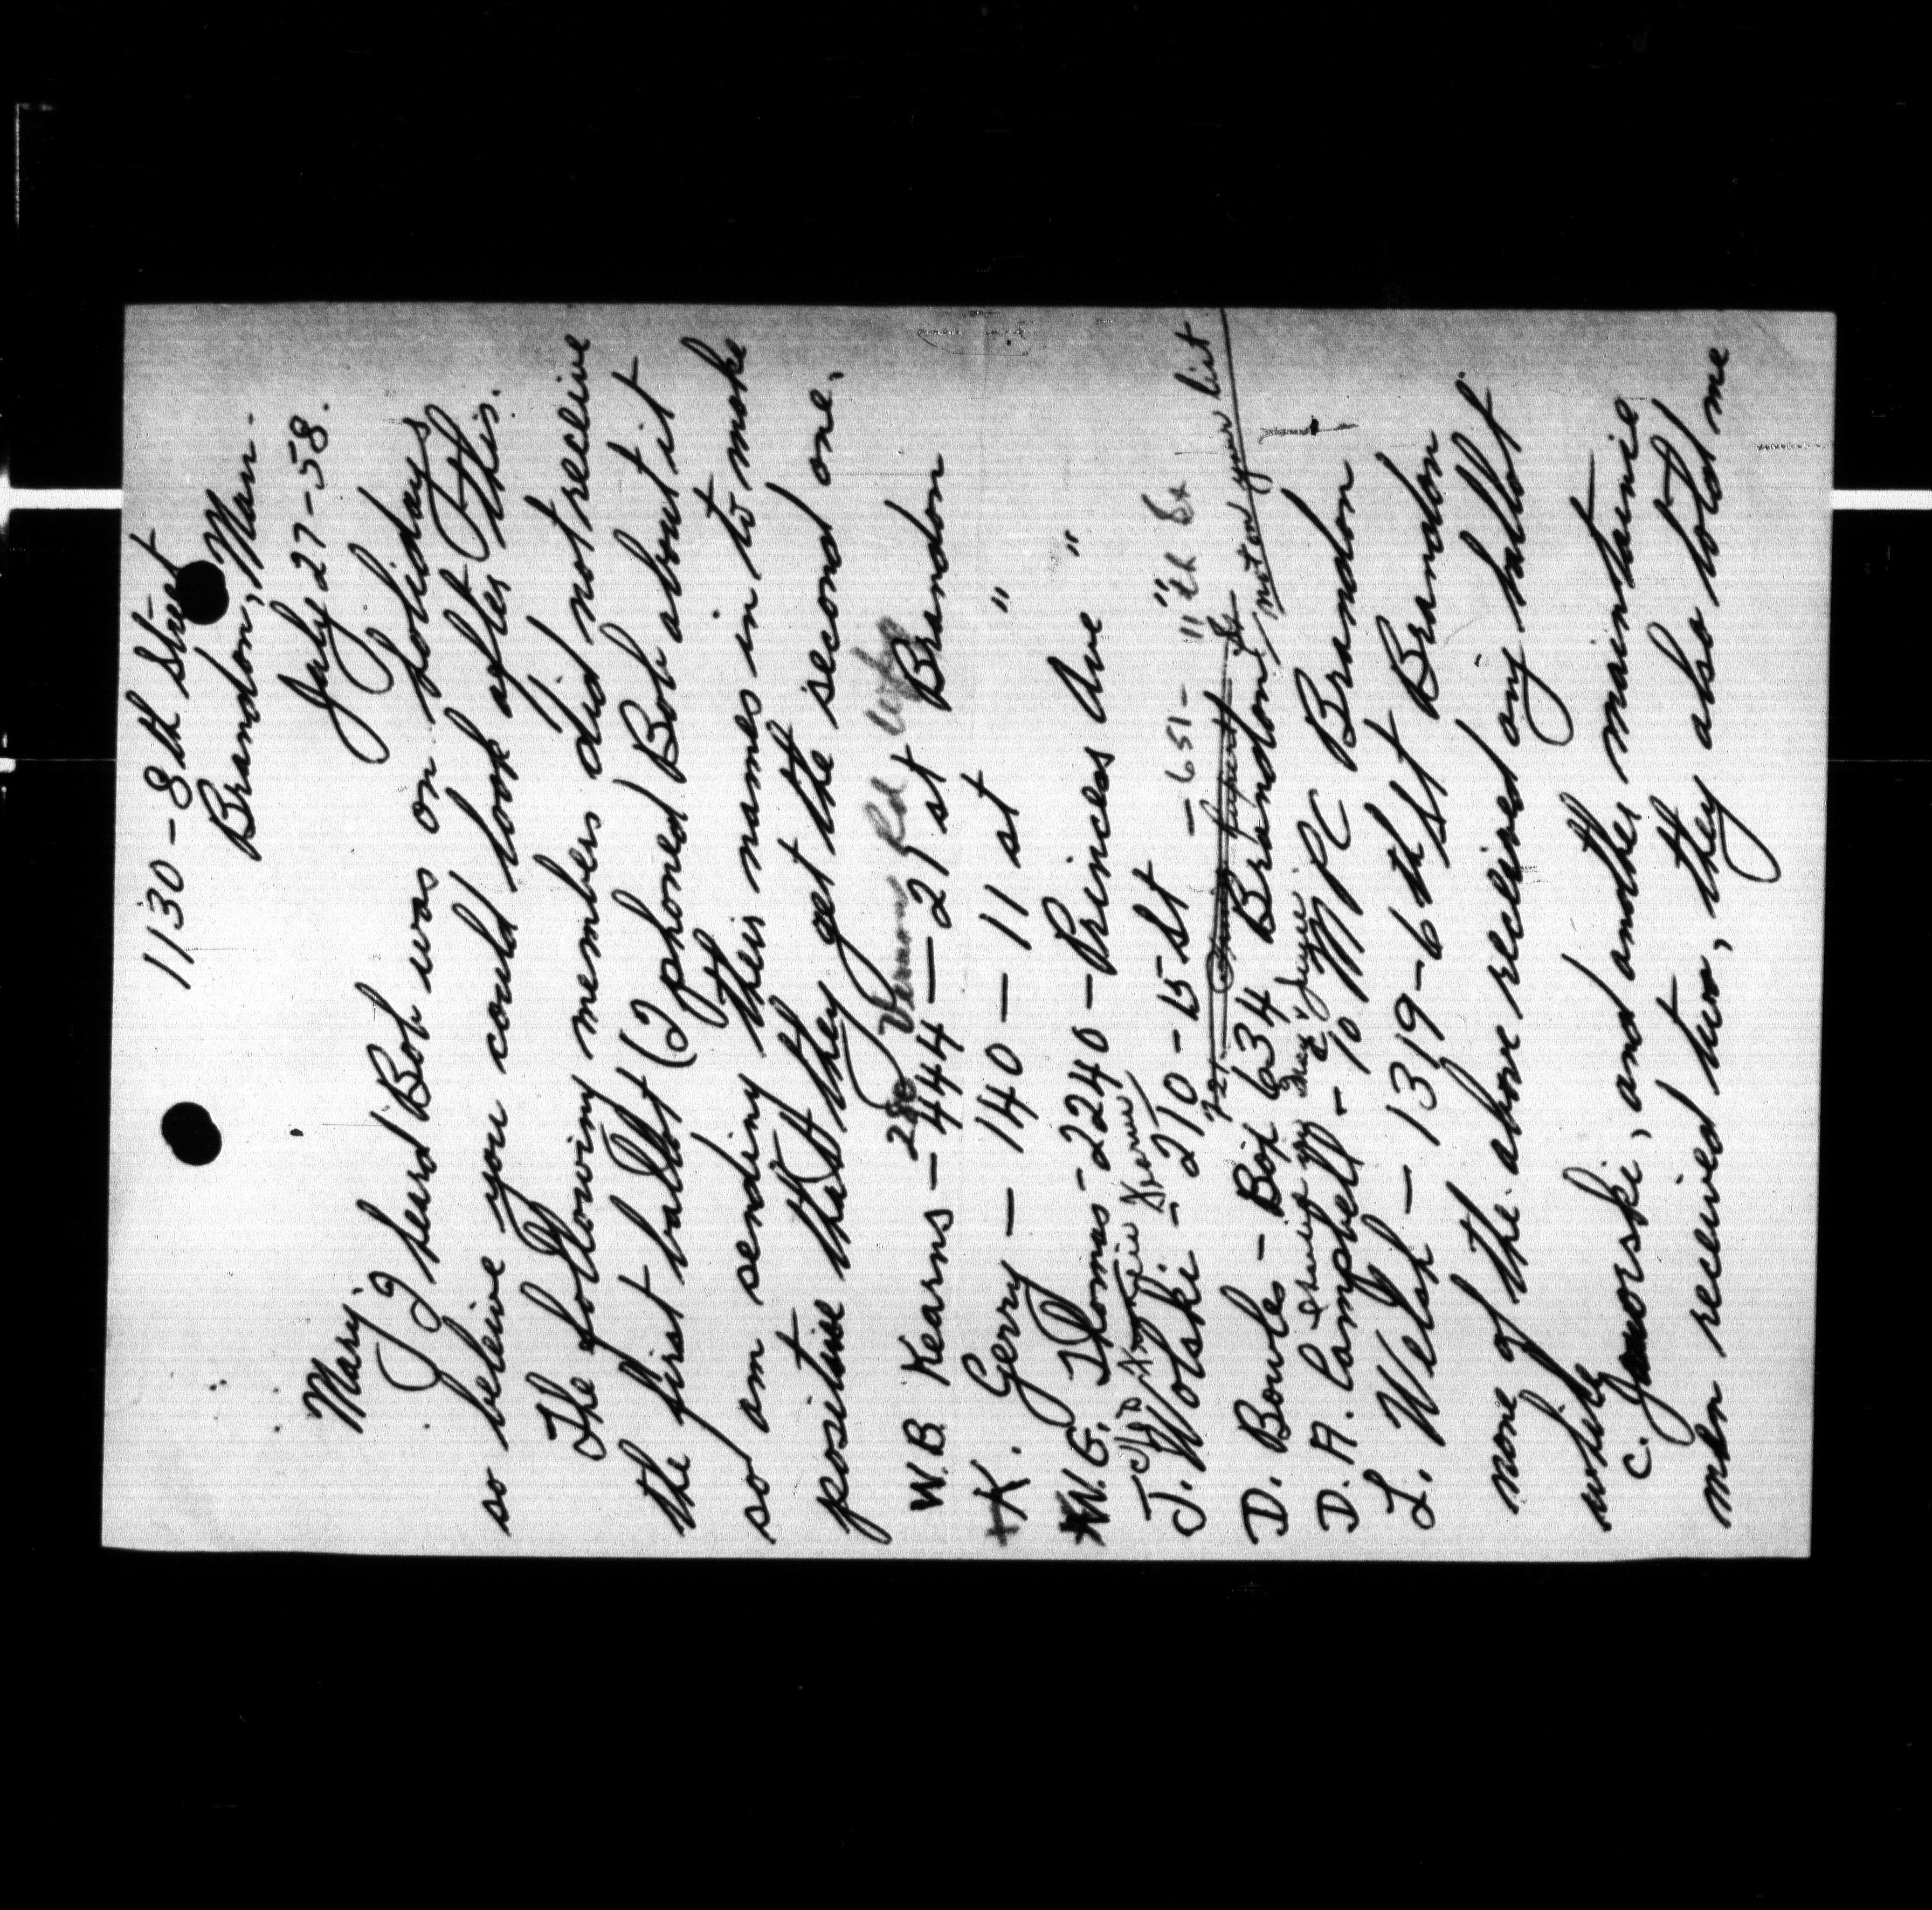 1130 - 8th Street
Brandon, Man.
July 27-58.
Mary:
I heard Bob was on holidays
so beleive you could look after this.
The following members did not receive
the first ballot (I phoned Bob about it
so am sending their names in to make
positive that they get the second one.
280
W.B. Kearns - 444 - 21 st Brandon
+K. Gerry - 140 - 11 st "
W.G. Thomas - 2240 - Princes Ave "
J. Wolski - 210 - 15 St - 651 - 11th St "
721
D. Bowles - Box 634 Brandon / not on your list
D.A. Campbell - 10 M P C Brandon
L. Welsh - 1319 - 6 th St Brandon
none of the above received any ballot
while
C. Jaworski, and another maintaince
man received two, they also told me